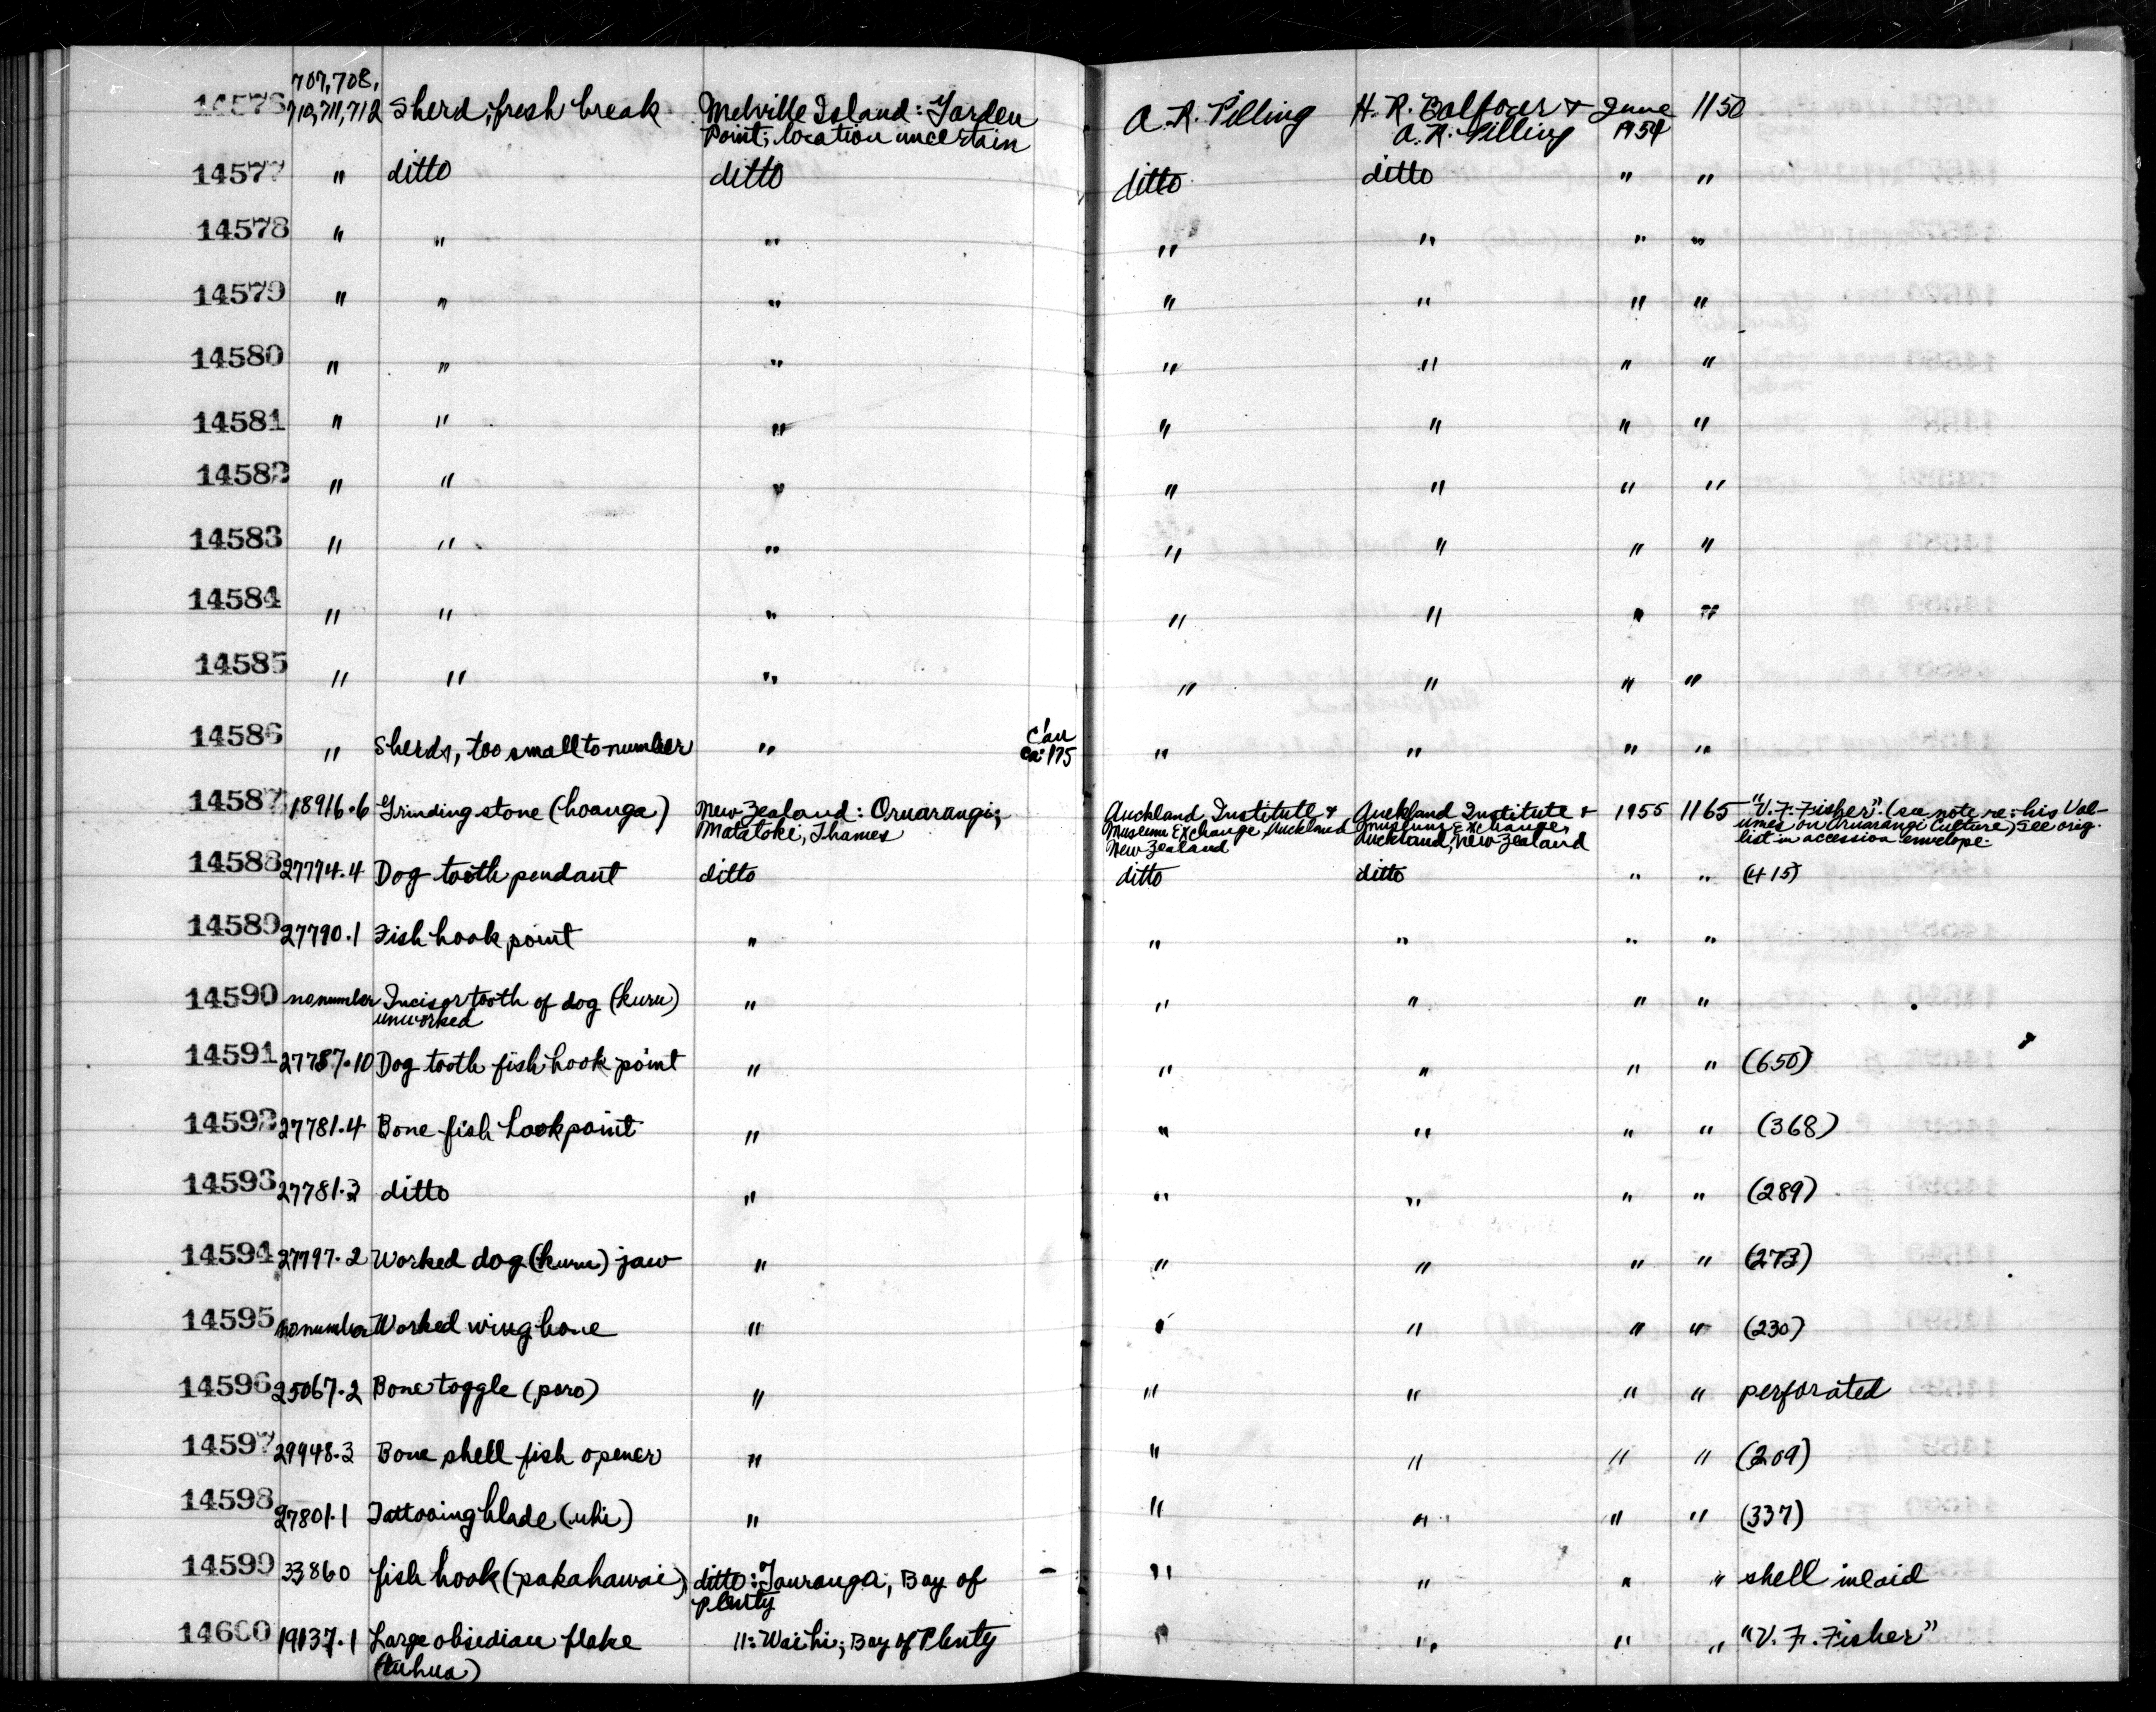 14576 707, 708, 710, 711, 712 Sherd, fresh break Melville Island: Garden Point; location uncertain A. R. Pilling H. R. Balfour & A. R. Pilling June 1954 1150
14577 " ditto ditto ditto ditto " "
14578 " " " " " " "
14579 " " " " " " "
14580 " " " " " " "
14581 " " " " " " "
14582 " " " " " " "
14583 " " " " " " "
14584 " " " " " " "
14585 " " " " " " "
14586 " Sherds, too small to number " ca: 175 " " " "
14587 18916.6 Grinding stone (hoanga) New Zealand: Oruarangi; Matatoki, Thames Auckland Institute & Museum Exchange, Auckland New Zealand Auckland Institute & Museum Exchange, Auckland, New Zealand 1955 1165 "V. F. Fisher". (see note re: his Volumes on Oruarangi Culture) See orig. list in accession envelope.
14588 27774.4 Dog tooth pendant ditto ditto ditto " " (415)
14589 27790.1 Fish hook point " " " " "
14590 no number Incisor tooth of dog (kuru) unworked " " " " "
14591 27787.10 Dog tooth fish hook point " " " " " (650)
14592 27781.4 Bone fish hook point " " " " " (368)
14593 27781.3 ditto " " " " " (289)
14594 27797.2 Worked dog (kuru) jaw " " " " " (273)
14595 no number Worked wing bone " " " " " (230)
14596 25067.2 Bone toggle (poro) " " " " " perforated
14597 29948.3 Bone shell fish opener " " " " " (209)
14598 27801.1 Tattooing blade (uhi) " " " " " (337)
14599 33860 fish hook (pakahawai) ditto: Tauranga; Bay of Plenty - " " " " shell inlaid
14600 19137.1 Large obsidian flake (tuhua) ": Waihi; Bay of Plenty " " " " "V. F. Fisher"